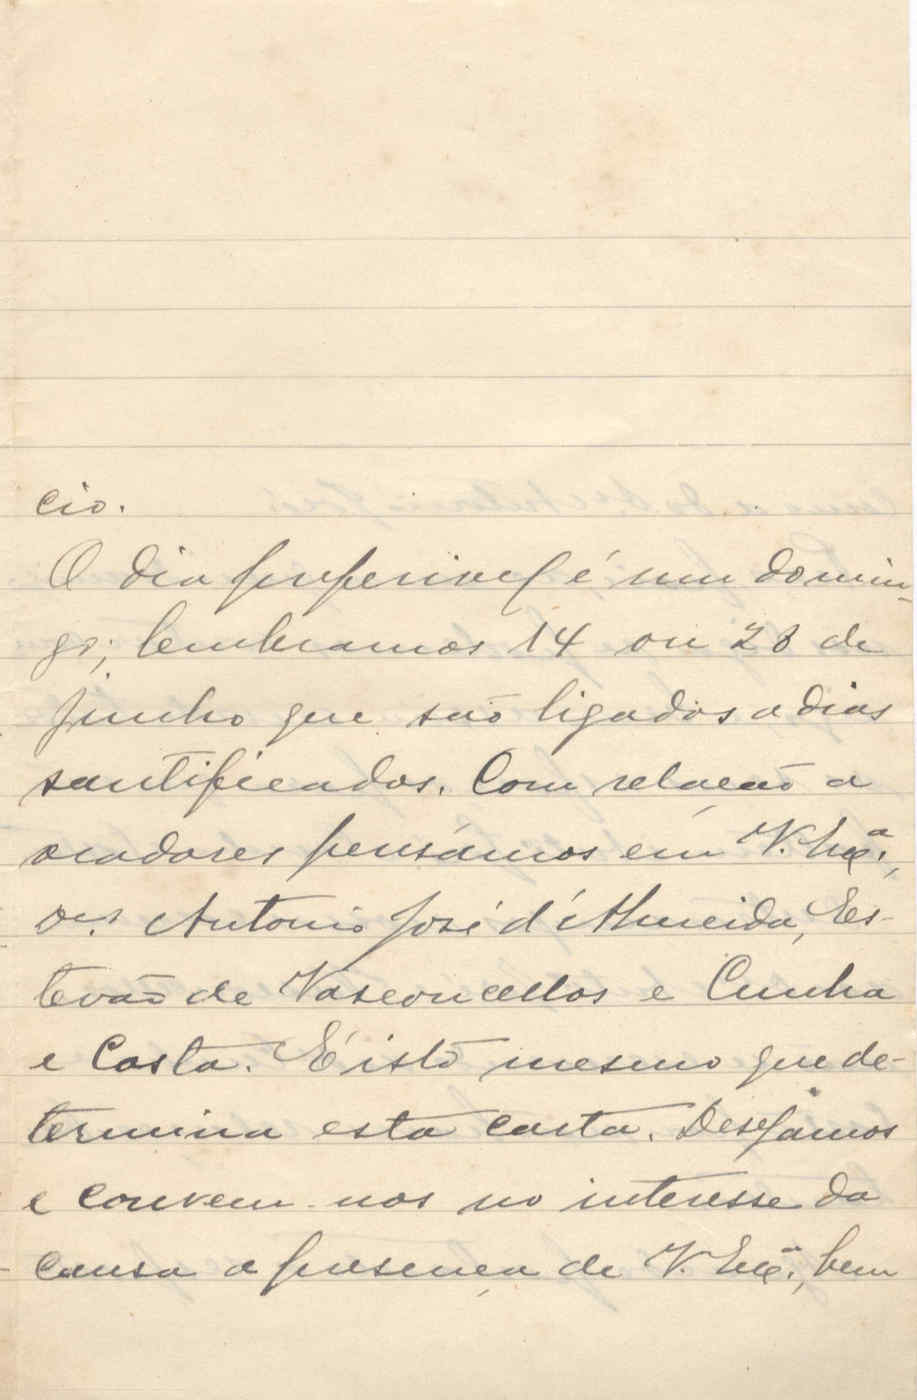 cio.
O dia preferivel é num domin-
go; lembramos 14 ou 28 de
junho que são ligados a dias
santificados. Com relação a
oradores pensámos em V. Exª.,
Drs. Antonio José d'Almeida, Es-
tevão de Vasconcellos e Cunha
e Costa. É isto mesmo que de-
termina esta carta. Desejamos
e convem-nos no interesse da
causa a presença de V. Exª., bem